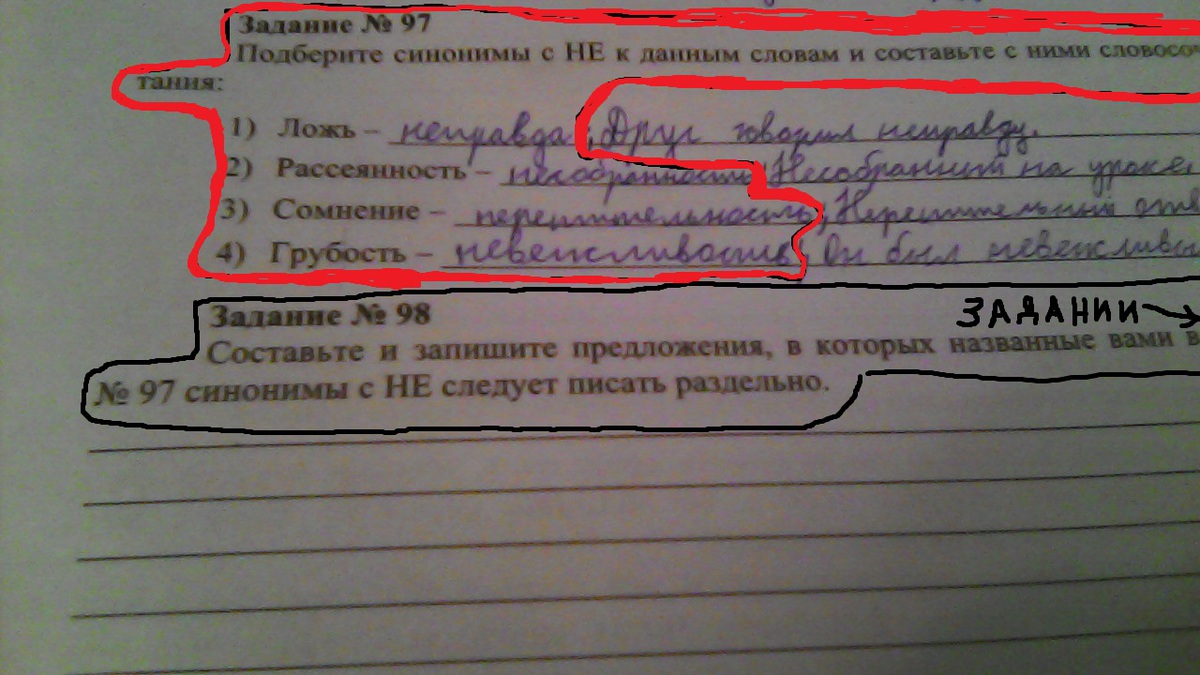 Задание № 97
Подберите синонимы с НЕ к данным словам и составьте с ними словосо
тания:
1) Ложь – неправда, Друг говорил неправду.
2) Рассеянность – несобранность, Несобранный на уроке
3) Сомнение – нерешительность, Нерешительный отв
4) Грубость – невежливость, Он был невежливы
Задание № 98
ЗАДАНИИ
Составьте и запишите предложения, в которых названные вами в
№ 97 синонимы с НЕ следует писать раздельно.